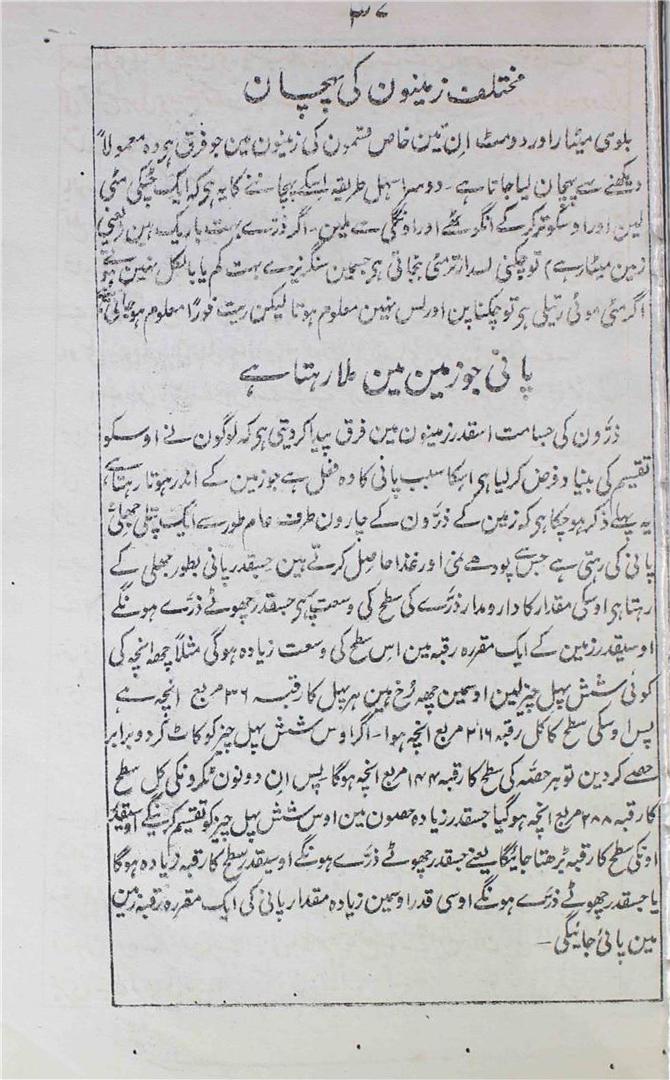 ۳۷
مختلف زمینون کی پہچان
بلوی میٹار اور دومٹ ان تین خاص قسمون کی زمینون مین جو فرق ہو وہ معمولاً
دیکھنے سے پہچان لیا جاتا ہے۔ دوسرا سہل طریقہ اسکے پہچاننے کا یہ ہو کہ ایک چٹکی مٹی
لین اور اوسکو تر کر کے انگوٹھے اور اونگلی سے ملین۔ اگر ذرے بہت باریک ہین (یعنی
زمین میٹار ہے) تو چکنی لسدار تر مٹی بنجاتی ہر جسمین سنگریزے بہت کم یا بالکل نہین ہوتے
اگر مٹی موٹی رتیلی ہو تو چکناپن اور لس نہین معلوم ہوتا لیکن ریت فوراً معلوم ہو جاتی
پانی جو زمین مین ملا رہتا ہے
ذرون کی جسامت اسقدر زمینون مین فرق پیدا کر دیتی ہر کہ لوگون نے اوسکو
تقسیم کی بنیاد فرض کر لیا ہر اسکا سبب پانی کا وہ فعل ہے جو زمین کے اندر ہوتا رہتا ہے
یہ پہلے ذکر ہو چکا ہر کہ زمین کے ذرون کے چارون طرف عام طور سے ایک پتلی جھلی
پانی کی رہتی ہے جس سے پودھے نمی اور غذا حاصل کرتے ہین جسقدر پانی بطور جھلی کے
رہتا ہر اوسکی مقدار کا دار و مدار ذرے کی سطح کی وسعت پر ہر جسقدر چھوٹے ذرے ہونگے
اوسیقدر زمین کے ایک مقررہ رقبہ مین اس سطح کی وسعت زیادہ ہوگی مثلاً چھ انچہ کی
کوئی شش پہل چیز لین اوسمین چھہ رخ ہین ہر پہل کا رقبہ ۳۶ مربع انچہ ہے
پس اوسکی سطح کا کل رقبہ ۲۱۶ مربع انچہ ہوا۔ اگر اوس شش پہل چیز کو کاٹ کر دو برابر
حصے کر دین تو ہر حصہ کی سطح کا رقبہ ۱۴۴ مربع انچہ ہوگا پس ان دونون ٹکرونکی کل سطح
کا رقبہ ۲۸۸ مربع انچہ ہو گیا جسقدر زیادہ حصون مین اوس شش پہل چیز کو تقسیم کرینگے اوسیقدر
اونکی سطح کا رقبہ بڑھتا جائیگا یعنے جسقدر چھوٹے ذرے ہونگے اوسیقدر سطح کا رقبہ زیادہ ہوگا
یا جسقدر چھوٹے ذرے ہونگے اوسی قدر اوسمین زیادہ مقدار پانی کی ایک مقررہ رقبہ زمین
مین پائی جائیگی۔